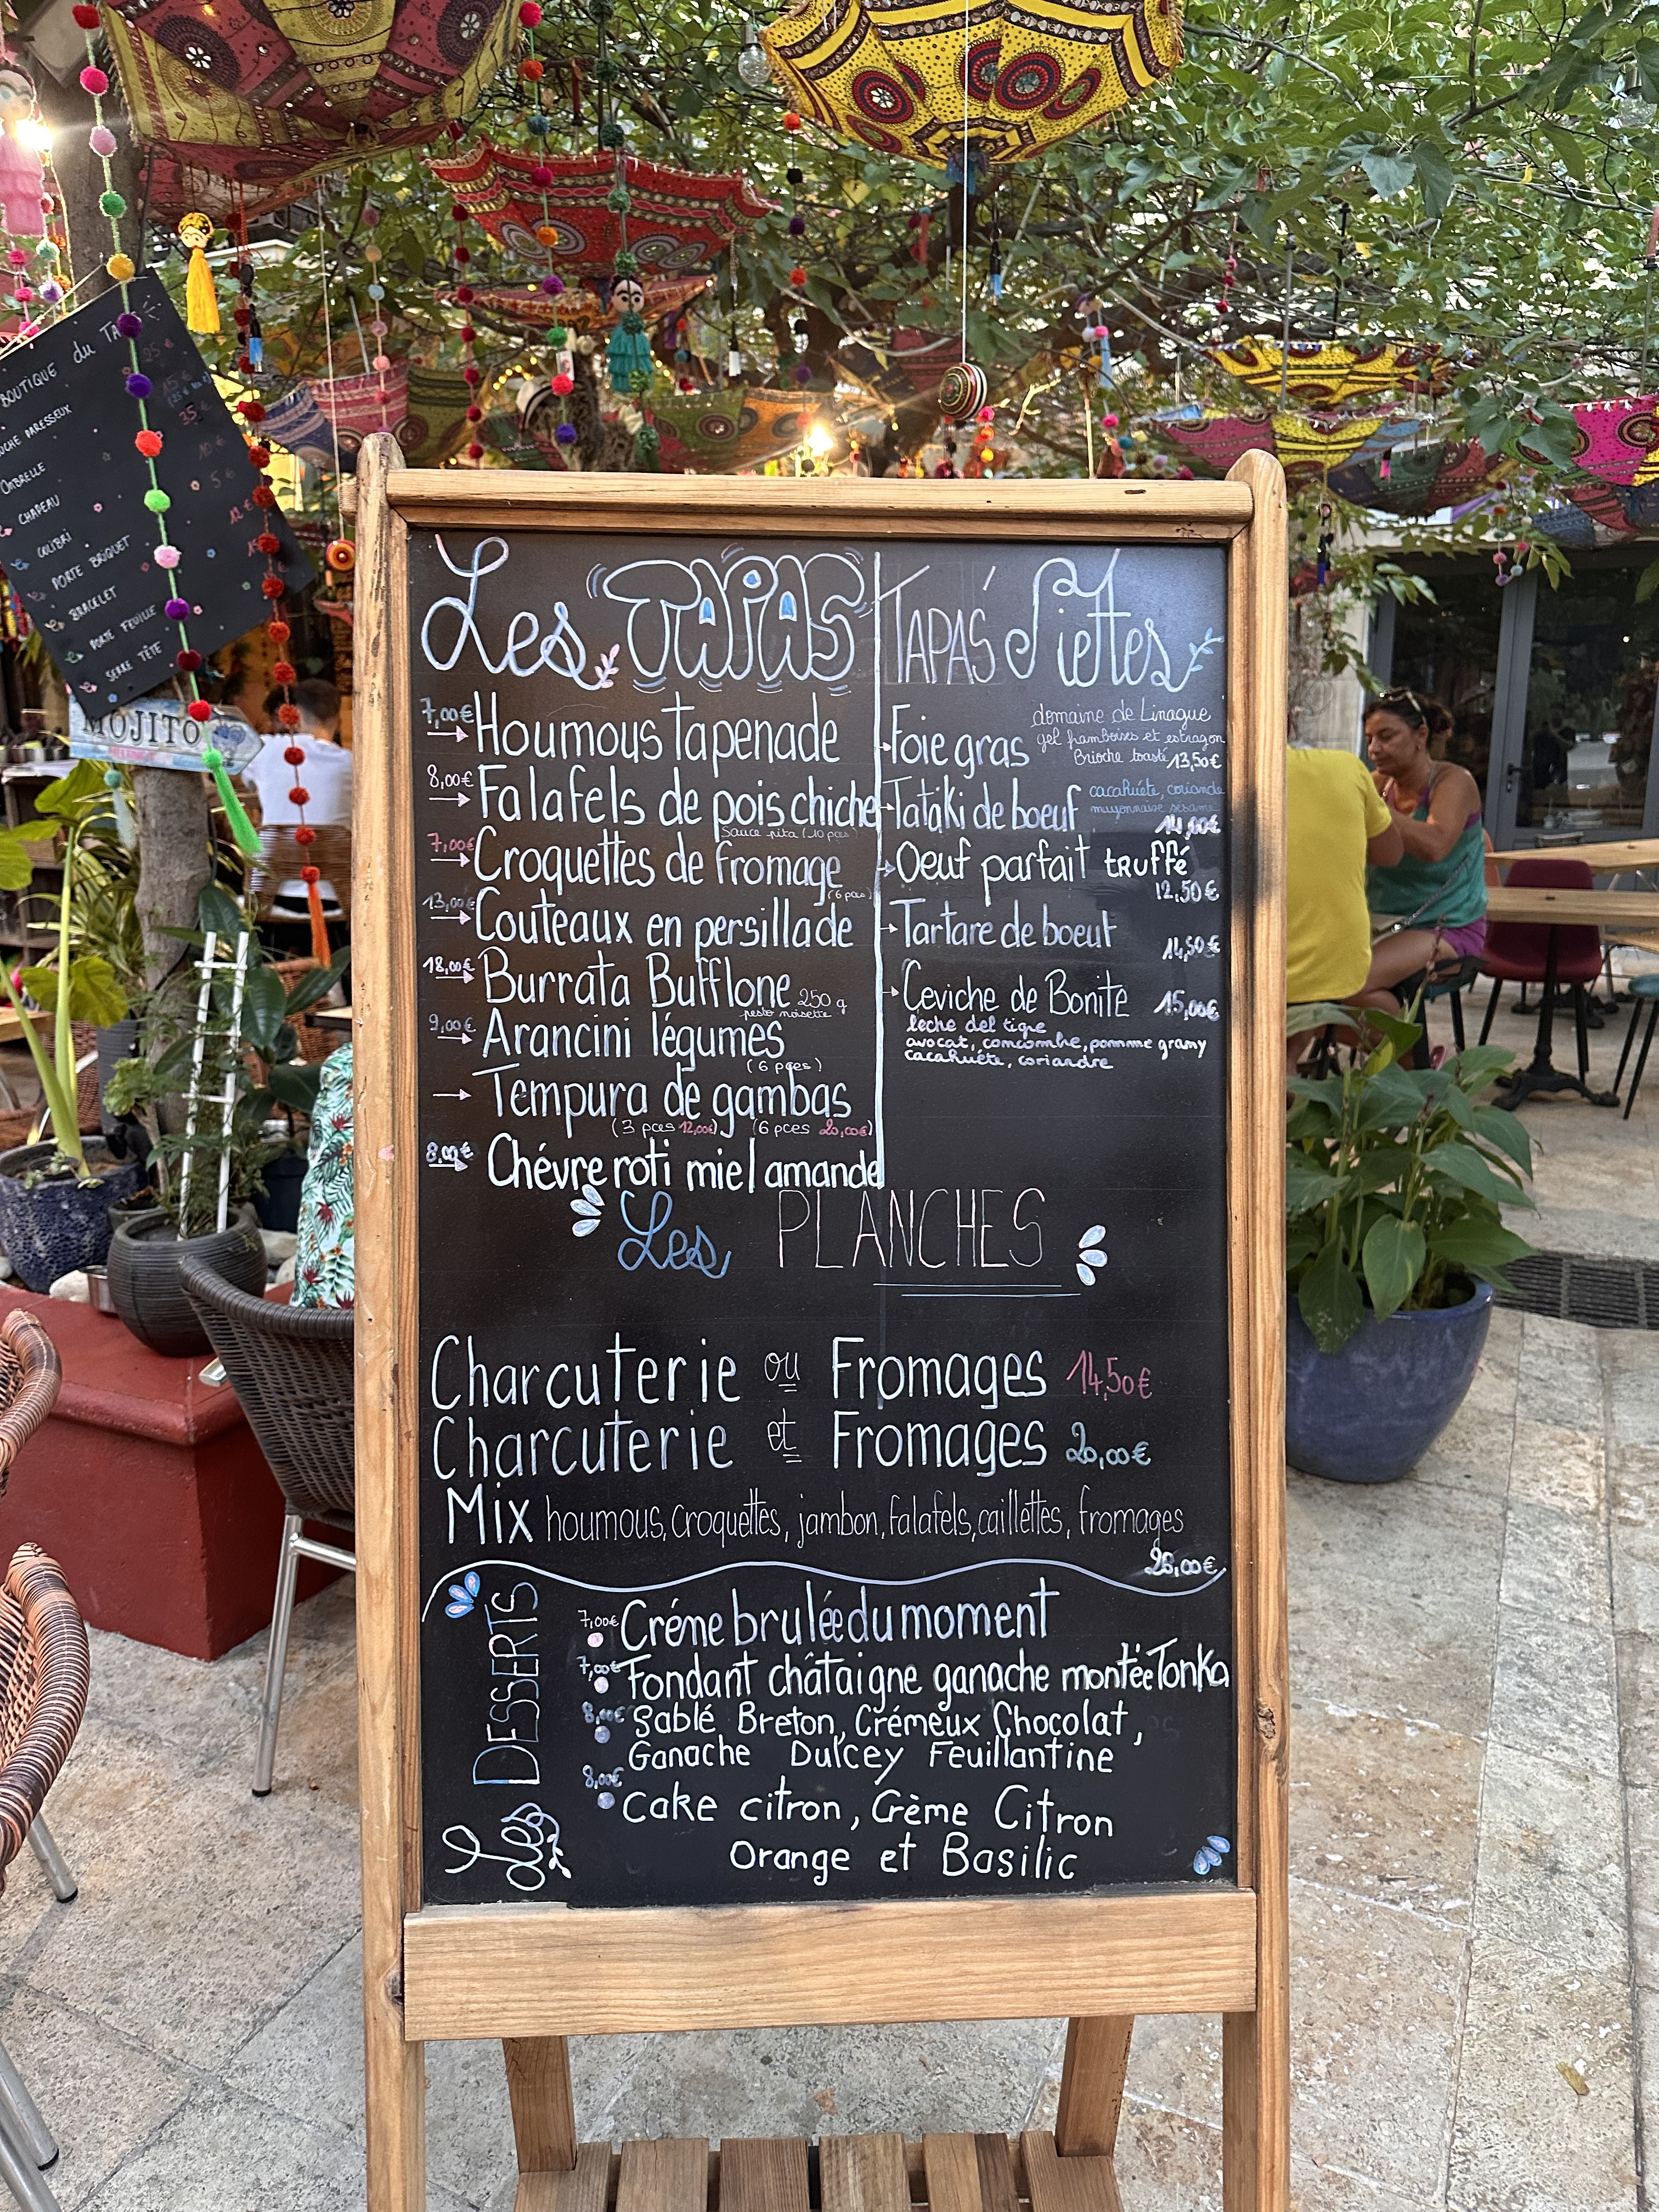 BOUTIQUE du
25 €
15 €
35 €
OMBRELLE
10 €
CHAPEAU
5 €
COLIBRI
12 €
PORTE BRIQUET
BRACELET
PORTE FEUILLE
SERRE TÊTE
MOJITO
Les TAPAS
7,00€ Houmous tapenade
8,00€ Falafels de pois chiche
Sauce pita (10 pces)
7,00€ Croquettes de fromage
(6 pces)
13,00€ Couteaux en persillade
18,00€ Burrata Bufflone 250 g
pesto noisette
9,00€ Arancini légumes
(6 pces)
Tempura de gambas
(3 pces 12,00€) (6 pces 20,00€)
8,00€ Chévre roti miel amande
TAPAS' Siettes
Foie gras domaine de Linague
gel framboises et estragon
Brioche toasté 13,50€
Tataki de boeuf cacahuéte, coriande
mayonnaise sesame
14,00€
Oeuf parfait truffé
12,50€
Tartare de boeuf
14,50€
Ceviche de Bonite 15,00€
leche del tigre
avocat, concombre, pomme gramy
cacahuète, coriandre
Les PLANCHES
Charcuterie ou Fromages 14,50€
Charcuterie et Fromages 20,00€
Mix houmous, croquettes, jambon, falafels, caillettes, fromages
26,00€
Les DESSERTS
7,00€ Créme brulée du moment
7,00€ Fondant châtaigne ganache montée Tonka
8,00€ Sablé Breton, Crémeux Chocolat,
Ganache Dulcey Feuillantine
8,00€ Cake citron, Crème Citron
Orange et Basilic